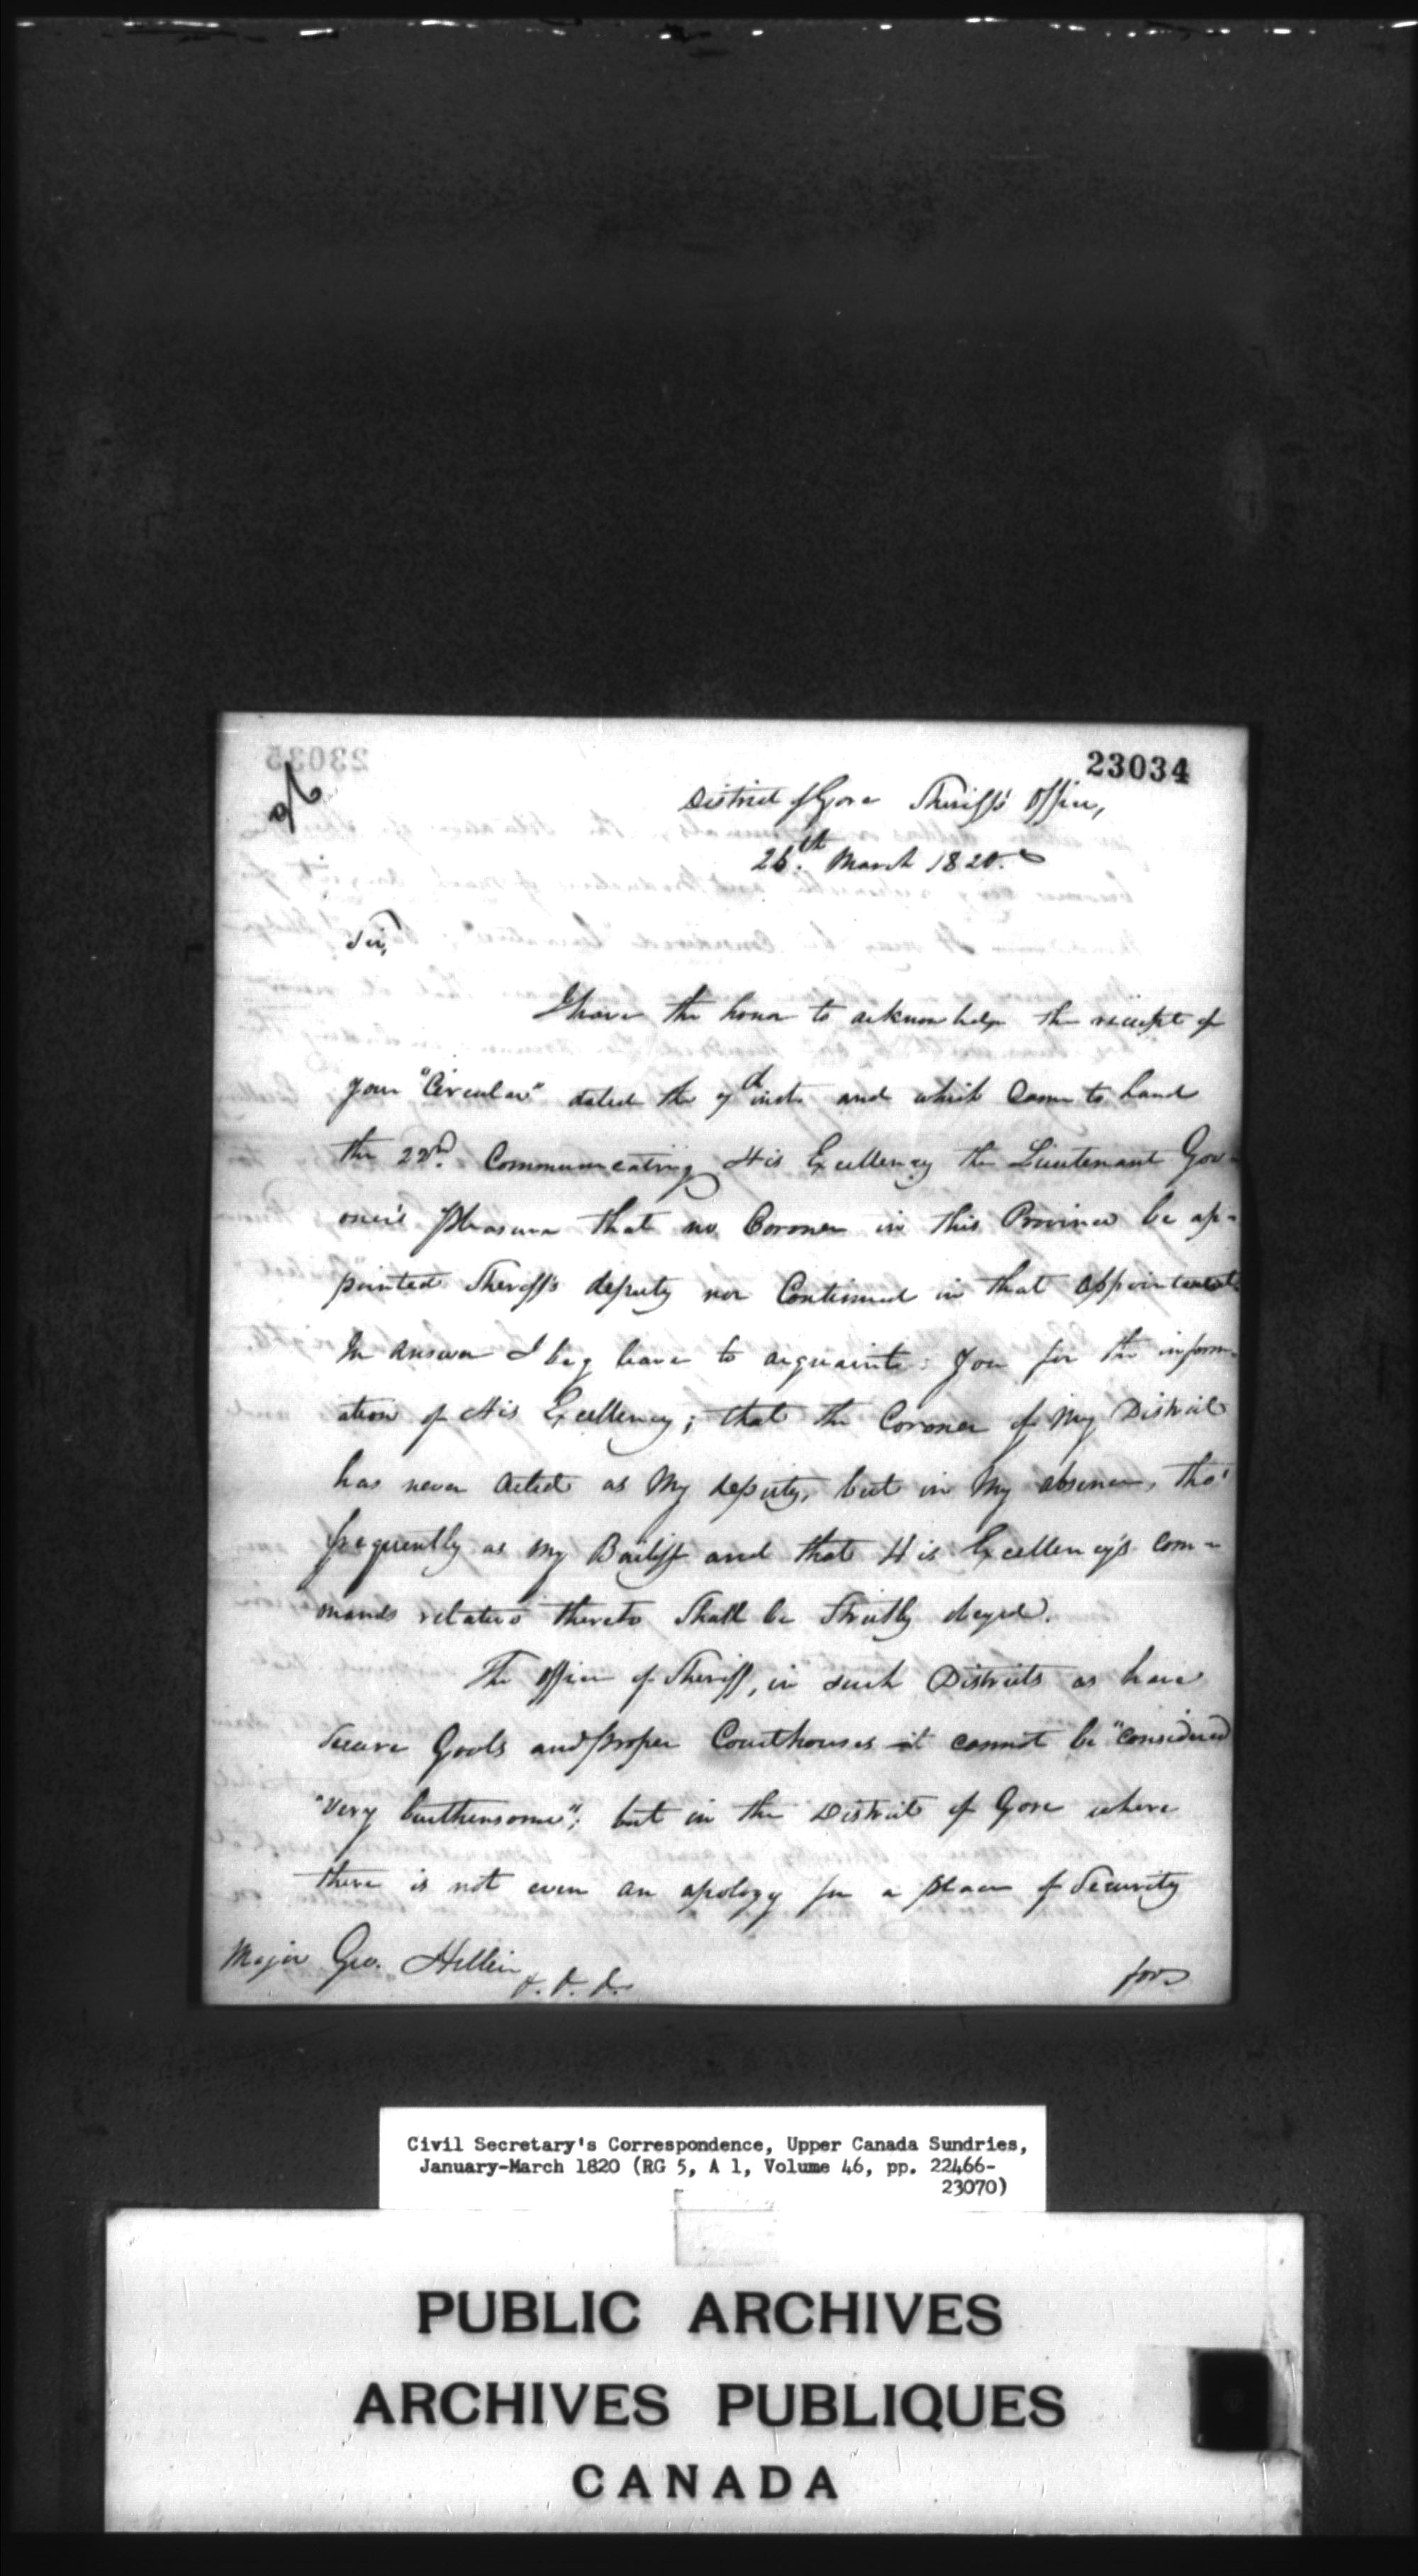 23034
District of Gore Sheriff's Office,
26.th March 1820.
Sir,
I have the honor to acknowledge the receipt of
your "Circular" dated the inst. and which Came to hand
the 22nd. Communicating His Excellency the Lieutenant Gov-
ernor's Pleasure that no Coroner in this Province be ap-
pointed Sheriff's deputy nor Continued in that appointment
In answer I beg leave to acquaint you for the inform-
ation of His Excellency; that the Coroner of My District
has never acted as My deputy, but in My absence, tho'
frequently as My Bailiff and that His Excellency's com-
mands relative thereto Shall be Strictly obeyed.
The Office of Sheriff, in such Districts as have
Secure Goals and proper Courthouses it cannot be "considered
"very burthensome"; but in the District of Gore where
there is not even an apology for a place of Security
Major Geo. Hillier
for
Civil Secretary's Correspondence, Upper Canada Sundries,
January-March 1820 (RG 5, A 1, Volume 46, pp. 22466-
23070)
PUBLIC ARCHIVES
ARCHIVES PUBLIQUES
CANADA